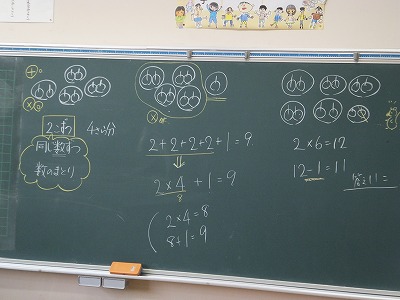 2こずつ
4さら分
同じ数ずつ
数のまとまり
2+2+2+2+1=9
2×4+1=9
8
2×4=8
8+1=9
2×6=12
12-1=11
答え11こ